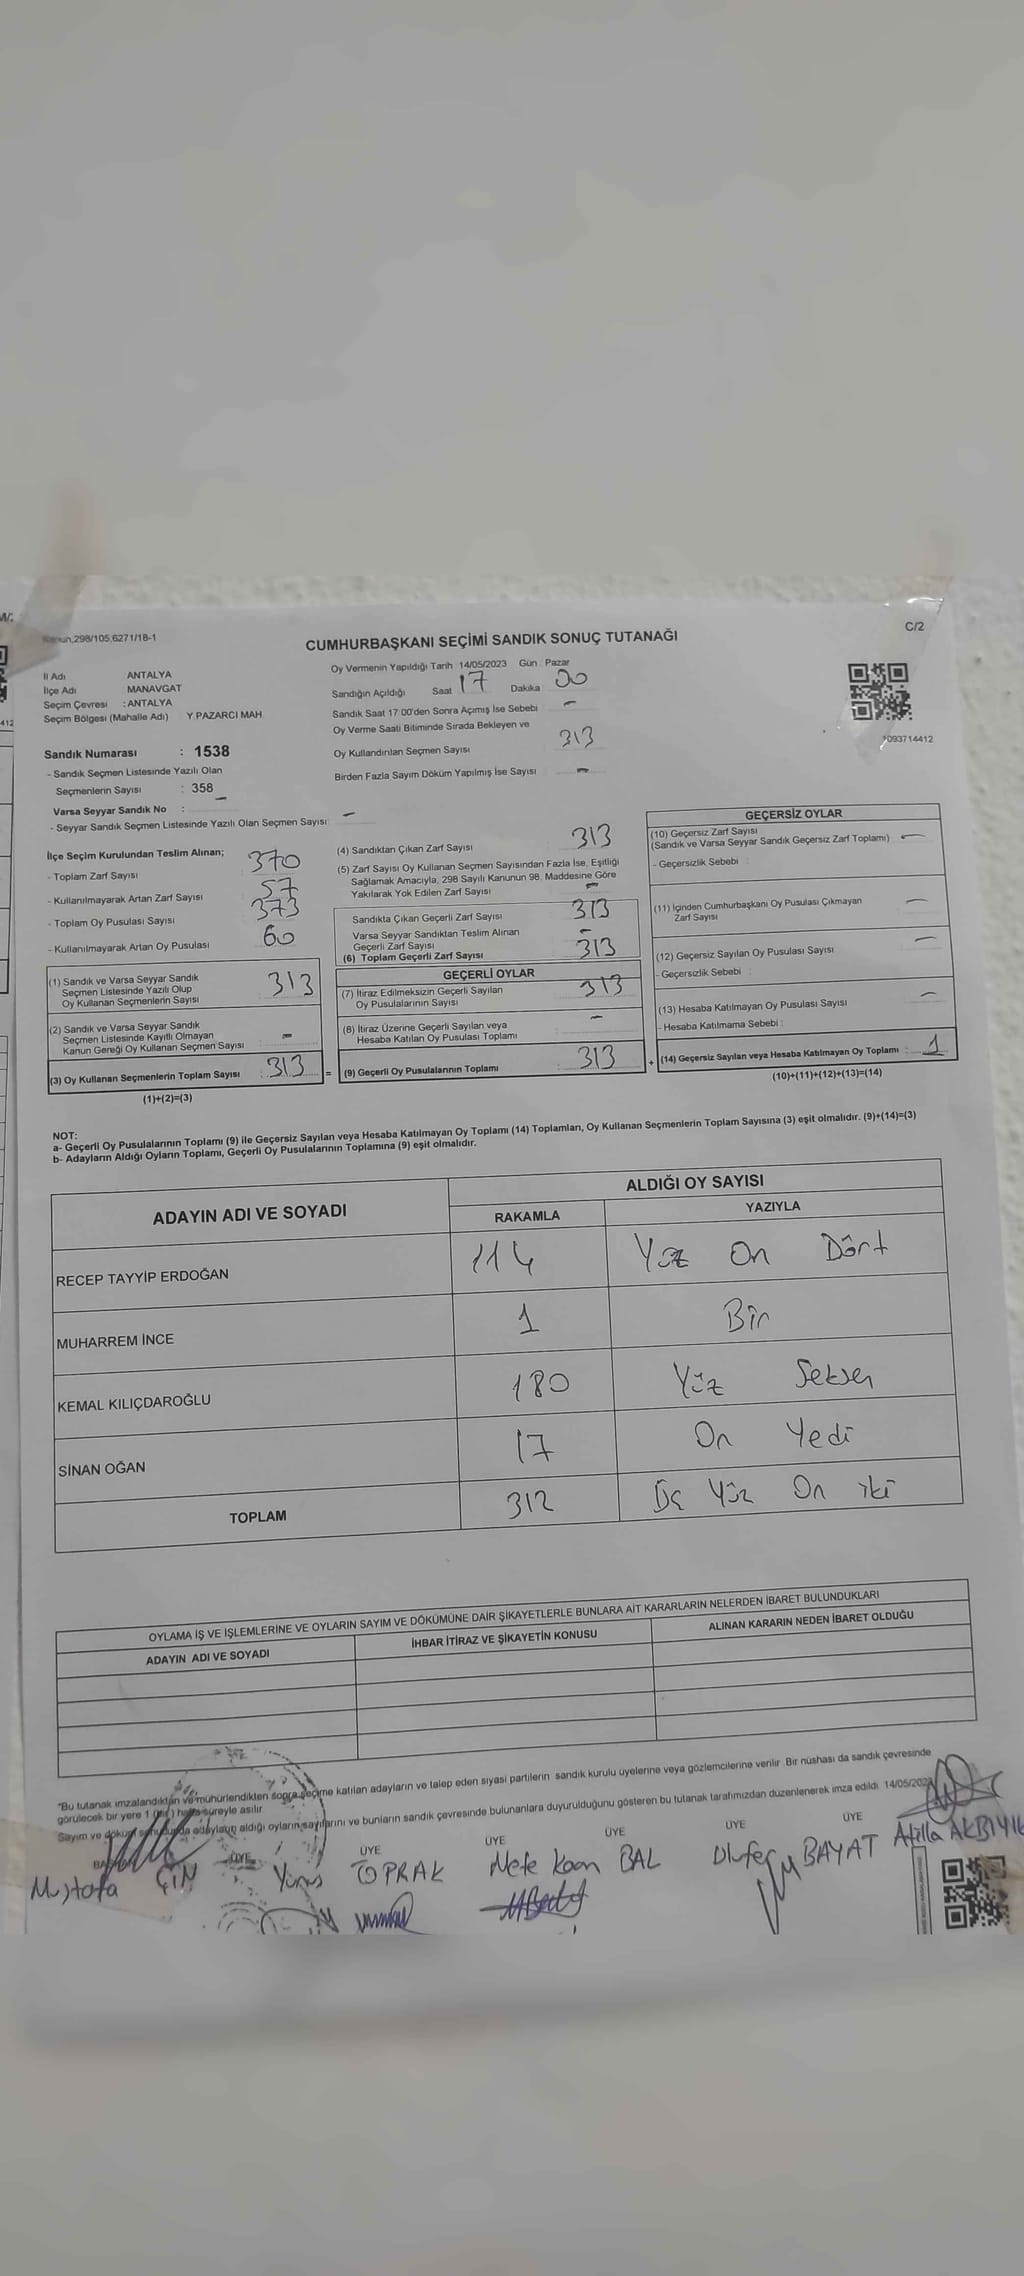 Kanun,298/105,6271/18-1
CUMHURBAŞKANI SEÇİMİ SANDIK SONUÇ TUTANAĞI
C/2
İl Adı ANTALYA
İlçe Adı MANAVGAT
Seçim Çevresi : ANTALYA
Seçim Bölgesi (Mahalle Adı) Y.PAZARCI MAH.
Oy Vermenin Yapıldığı Tarih 14/05/2023 Gün : Pazar
Sandığın Açıldığı Saat 17 Dakika 00
Sandık Saat 17:00'den Sonra Açımış İse Sebebi : -
Oy Verme Saati Bitiminde Sırada Bekleyen ve
Oy Kullandırılan Seçmen Sayısı 313
Birden Fazla Sayım Döküm Yapılmış İse Sayısı -
1093714412
Sandık Numarası : 1538
- Sandık Seçmen Listesinde Yazılı Olan
Seçmenlerin Sayısı : 358
Varsa Seyyar Sandık No : -
- Seyyar Sandık Seçmen Listesinde Yazılı Olan Seçmen Sayısı: -
İlçe Seçim Kurulundan Teslim Alınan;
- Toplam Zarf Sayısı 370
- Kullanılmayarak Artan Zarf Sayısı 57
- Toplam Oy Pusulası Sayısı 373
- Kullanılmayarak Artan Oy Pusulası 60
(1) Sandık ve Varsa Seyyar Sandık
Seçmen Listesinde Yazılı Olup
Oy Kullanan Seçmenlerin Sayısı 313
(2) Sandık ve Varsa Seyyar Sandık
Seçmen Listesinde Kayıtlı Olmayan
Kanun Gereği Oy Kullanan Seçmen Sayısı -
(3) Oy Kullanan Seçmenlerin Toplam Sayısı : 313
(1)+(2)=(3)
(4) Sandıktan Çıkan Zarf Sayısı 313
(5) Zarf Sayısı Oy Kullanan Seçmen Sayısından Fazla İse, Eşitliği
Sağlamak Amacıyla, 298 Sayılı Kanunun 98. Maddesine Göre
Yakılarak Yok Edilen Zarf Sayısı -
Sandıkta Çıkan Geçerli Zarf Sayısı 313
Varsa Seyyar Sandıktan Teslim Alınan
Geçerli Zarf Sayısı -
(6) Toplam Geçerli Zarf Sayısı 313
GEÇERLİ OYLAR
(7) İtiraz Edilmeksizin Geçerli Sayılan
Oy Pusulalarının Sayısı 313
(8) İtiraz Üzerine Geçerli Sayılan veya
Hesaba Katılan Oy Pusulası Toplamı -
= (9) Geçerli Oy Pusulalarının Toplamı 313
GEÇERSİZ OYLAR
(10) Geçersiz Zarf Sayısı
(Sandık ve Varsa Seyyar Sandık Geçersiz Zarf Toplamı) -
- Geçersizlik Sebebi :
(11) İçinden Cumhurbaşkanı Oy Pusulası Çıkmayan
Zarf Sayısı -
(12) Geçersiz Sayılan Oy Pusulası Sayısı -
- Geçersizlik Sebebi :
(13) Hesaba Katılmayan Oy Pusulası Sayısı -
- Hesaba Katılmama Sebebi :
+ (14) Geçersiz Sayılan veya Hesaba Katılmayan Oy Toplamı : 1
(10)+(11)+(12)+(13)=(14)
NOT:
a- Geçerli Oy Pusulalarının Toplamı (9) ile Geçersiz Sayılan veya Hesaba Katılmayan Oy Toplamı (14) Toplamları, Oy Kullanan Seçmenlerin Toplam Sayısına (3) eşit olmalıdır. (9)+(14)=(3)
b- Adayların Aldığı Oyların Toplamı, Geçerli Oy Pusulalarının Toplamına (9) eşit olmalıdır.
ADAYIN ADI VE SOYADI
ALDIĞI OY SAYISI
RAKAMLA YAZIYLA
RECEP TAYYİP ERDOĞAN 114 Yüz On Dört
MUHARREM İNCE 1 Bir
KEMAL KILIÇDAROĞLU 180 Yüz Seksen
SİNAN OĞAN 17 On Yedi
TOPLAM 312 Üç Yüz On iki
OYLAMA İŞ VE İŞLEMLERİNE VE OYLARIN SAYIM VE DÖKÜMÜNE DAİR ŞİKAYETLERLE BUNLARA AİT KARARLARIN NELERDEN İBARET BULUNDUKLARI
ADAYIN ADI VE SOYADI İHBAR İTİRAZ VE ŞİKAYETİN KONUSU ALINAN KARARIN NEDEN İBARET OLDUĞU
"Bu tutanak imzalandıktan ve mühürlendikten sonra seçime katılan adayların ve talep eden siyasi partilerin sandık kurulu üyelerine veya gözlemcilerine verilir. Bir nüshası da sandık çevresinde
görülecek bir yere 1 (bir) hafta süreyle asılır.
Sayım ve döküm sonucunda adayların aldığı oyların sayılarını ve bunların sandık çevresinde bulunanlara duyurulduğunu gösteren bu tutanak tarafımızdan düzenlenerek imza edildi. 14/05/2023
ÜYE ÜYE ÜYE ÜYE ÜYE ÜYE
Mustafa ÇİN Yunus TOPRAK Mete Kaan BAL BAYAT Atilla AKBIYIK